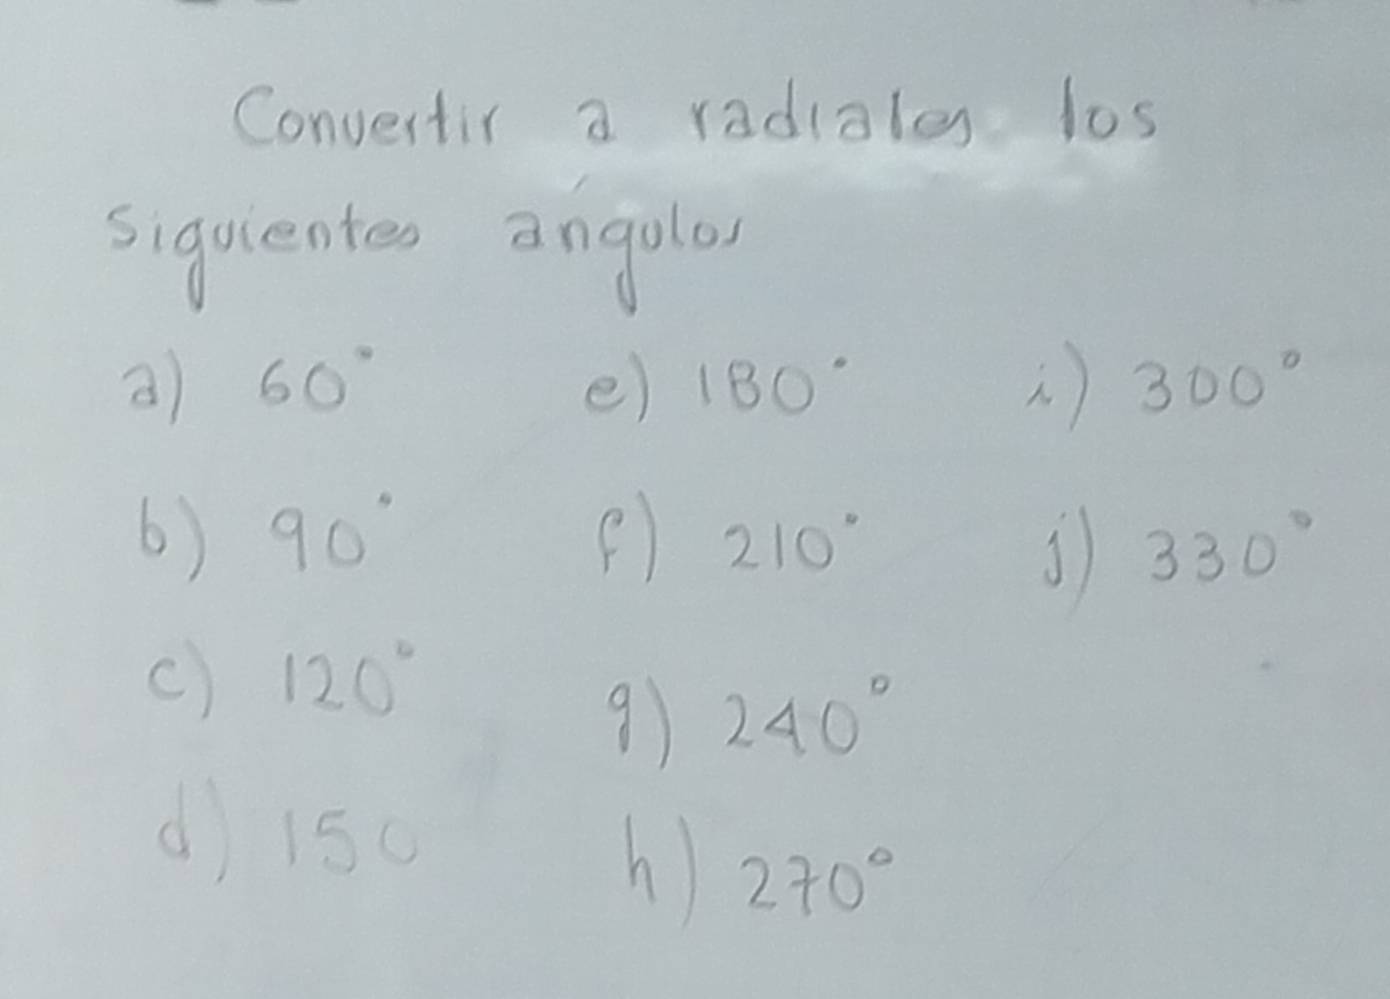 Convertir a radiales los
siguientes ángulos
a) 60° e) 180° i) 300°
b) 90° f) 210° j) 330°
c) 120° g) 240°
d) 150 h) 270°